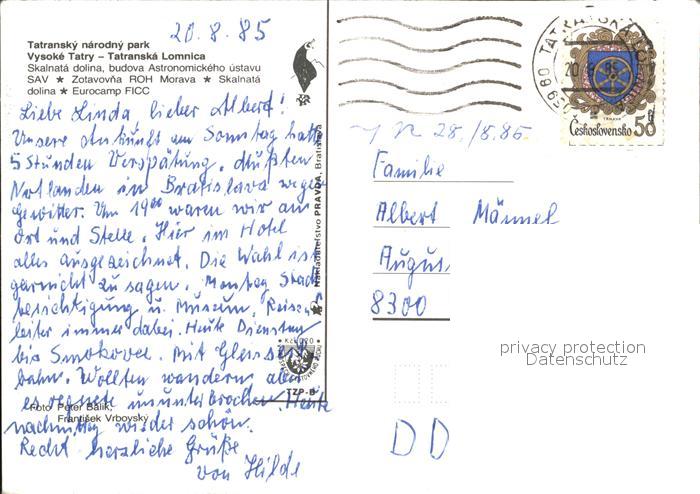 20.8.85
Tatranský národný park
Vysoké Tatry – Tatranská Lomnica
Skalnatá dolina, budova Astronomického ústavu
SAV ★ Zotavovňa ROH Morava ★ Skalnatá
dolina ★ Eurocamp FICC
Liebe Linda, lieber Albert!
Unsere Ankunft am Sonntag hatte
5 Stunden Verspätung. Mußten
Notlanden in Bratislava wegen
Gewitter. Um 19⁰⁰ waren wir an
Ort und Stelle. Hier im Hotel
alles ausgezeichnet. Die Wahl ist
garnicht zu sagen. Montag Stadt
besichtigung u. Museum. Reise
leiter immer dabei. Heute Dienstag
bis Smokovec. Mit
bahn. Wollten wandern aber
es regnete ununterbrochen. Heute
nachmittag wieder schön.
Recht herzliche Grüße
von Hilde
Foto Peter Balík,
František Vrbovský
Nakladateľstvo PRAVDA, Bratislava
Kčs 0,20
TZP-B
TATRANSKÁ
059 60
20. 8. 85
Československo 50 h
28./8.85
Familie
Albert Männel
Augus.
8300
privacy protection
Datenschutz
DD